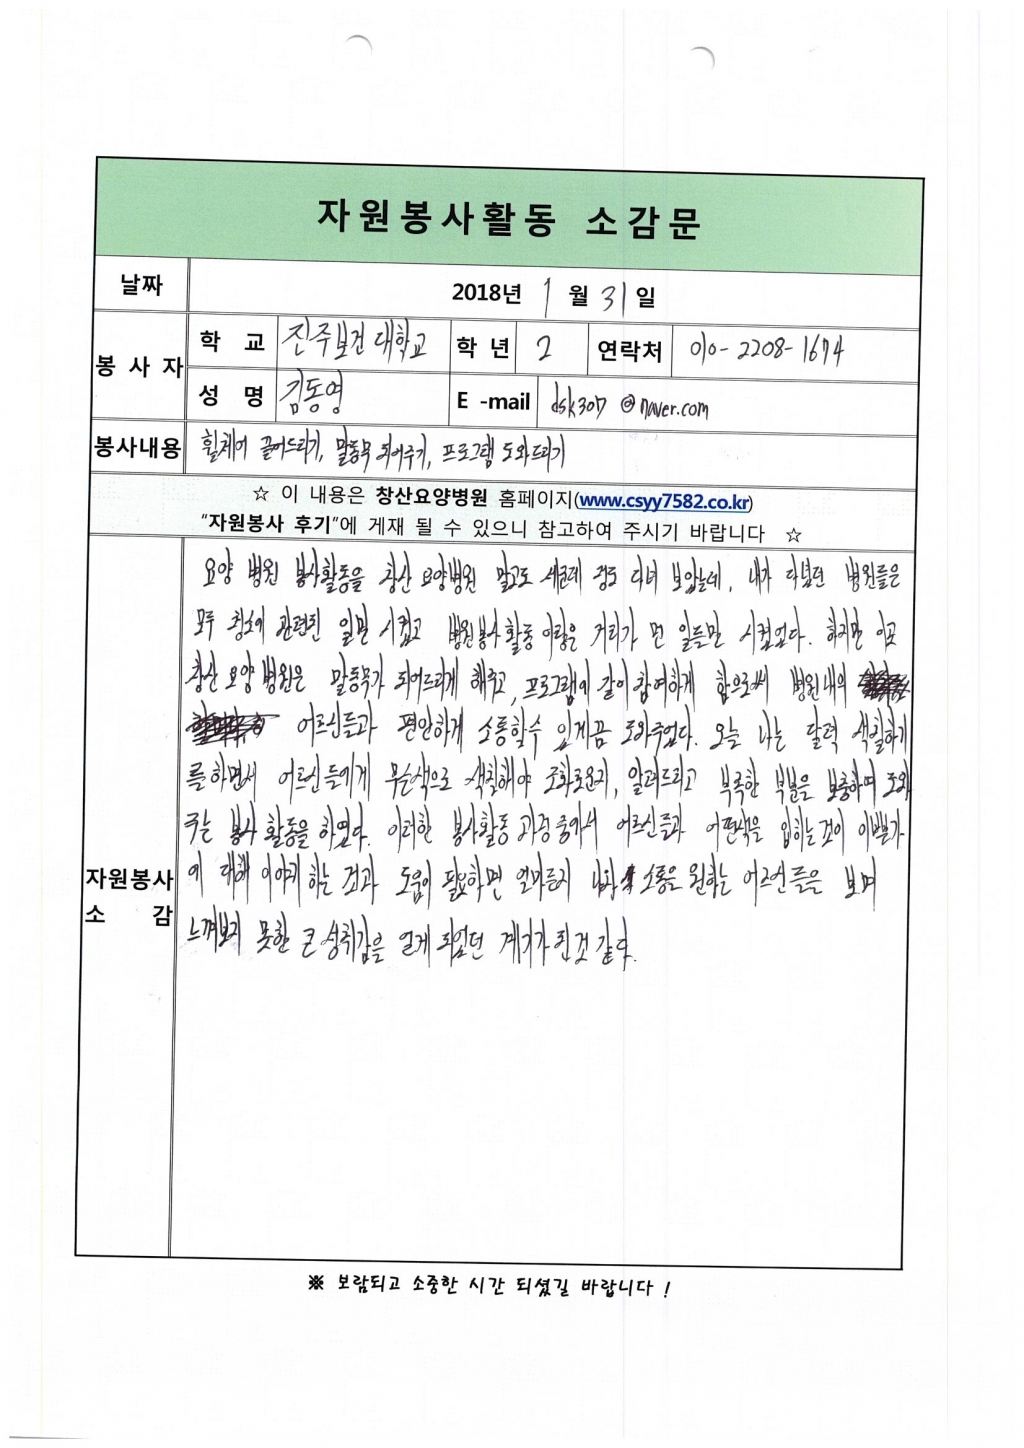 자원봉사활동 소감문
날짜 2018년 1 월 31 일
봉사자 학 교 진주보건대학교 학년 2 연락처 010-2208-1674
성 명 김동영 E-mail dsk307@naver.com
봉사내용 휠체어 끌어드리기, 말동무 되어주기, 프로그램 도와드리기
☆ 이 내용은 창산요양병원 홈페이지(www.csyy7582.co.kr)
“자원봉사 후기”에 게재 될 수 있으니 참고하여 주시기 바랍니다 ☆
자원봉사 소감
요양 병원 봉사활동을 창산 요양병원 말고도 세군데 정도 다녀 보았는데, 내가 다녔던 병원들은
모두 청소에 관련된 일만 시켰고 병원봉사활동이랑은 거리가 먼 일들만 시켰었다. 하지만 이곳
창산 요양 병원은 말동무가 되어드리게 해주고, 프로그램에 같이 참여하게 함으로써 병원내의
어르신들과 편안하게 소통할수 있게끔 도와주었다. 오늘 나는 달력 색칠하기
를 하면서 어르신들에게 무슨색으로 색칠해야 조화로운지, 알려드리고 부족한 부분을 보충하며 도와
주는 봉사 활동을 하였다. 이러한 봉사활동 과정 중에서 어르신들과 어떤색을 입히는것이 이쁠까
에 대해 이야기 하는 것과 도움이 필요하면 얼마든지 소통을 원하는 어르신들을 보며
느껴보지 못한 큰 성취감을 얻게 되었던 계기가 된것 같다.
※ 보람되고 소중한 시간 되셨길 바랍니다 !